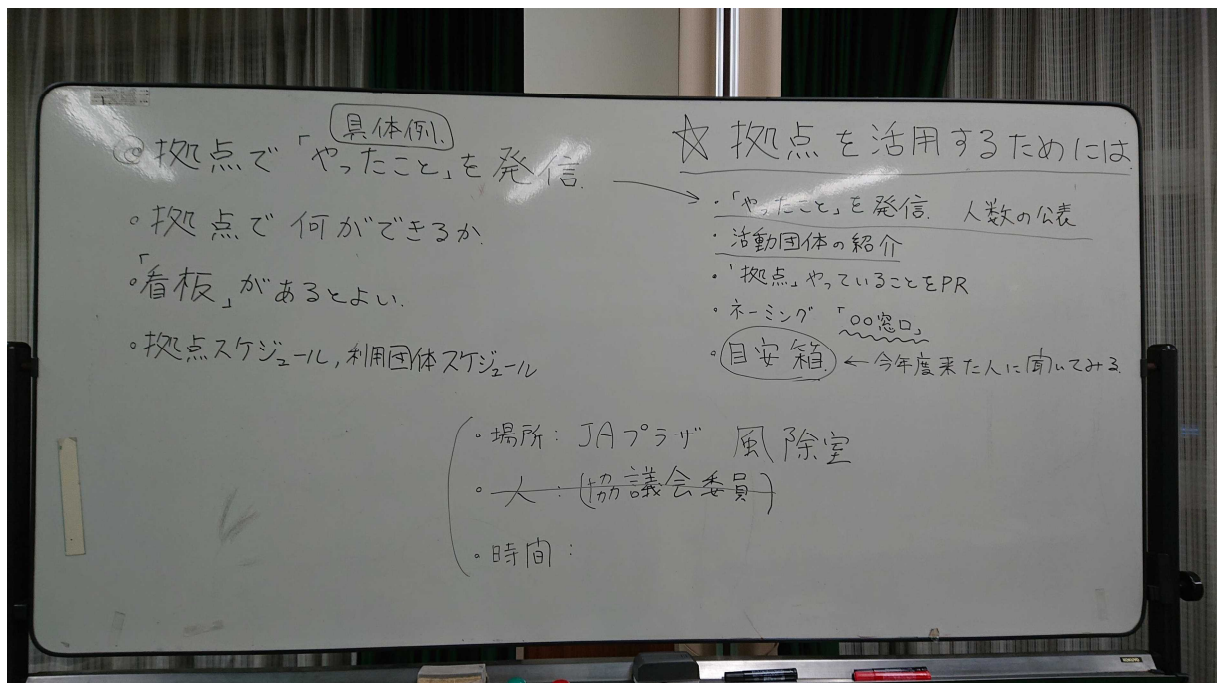 具体例.
◎拠点で「やったこと」を発信.
・拠点で何ができるか.
・「看板」があるとよい.
・拠点スケジュール,利用団体スケジュール
☆拠点を活用するためには
→・「やったこと」を発信. 人数の公表
・活動団体の紹介
・「拠点」やっていることをPR
・ネーミング「〇〇窓口」
・目安箱.←今年度来た人に聞いてみる.
・場所:JAプラザ 風除室
・人:(協議会委員)
・時間: